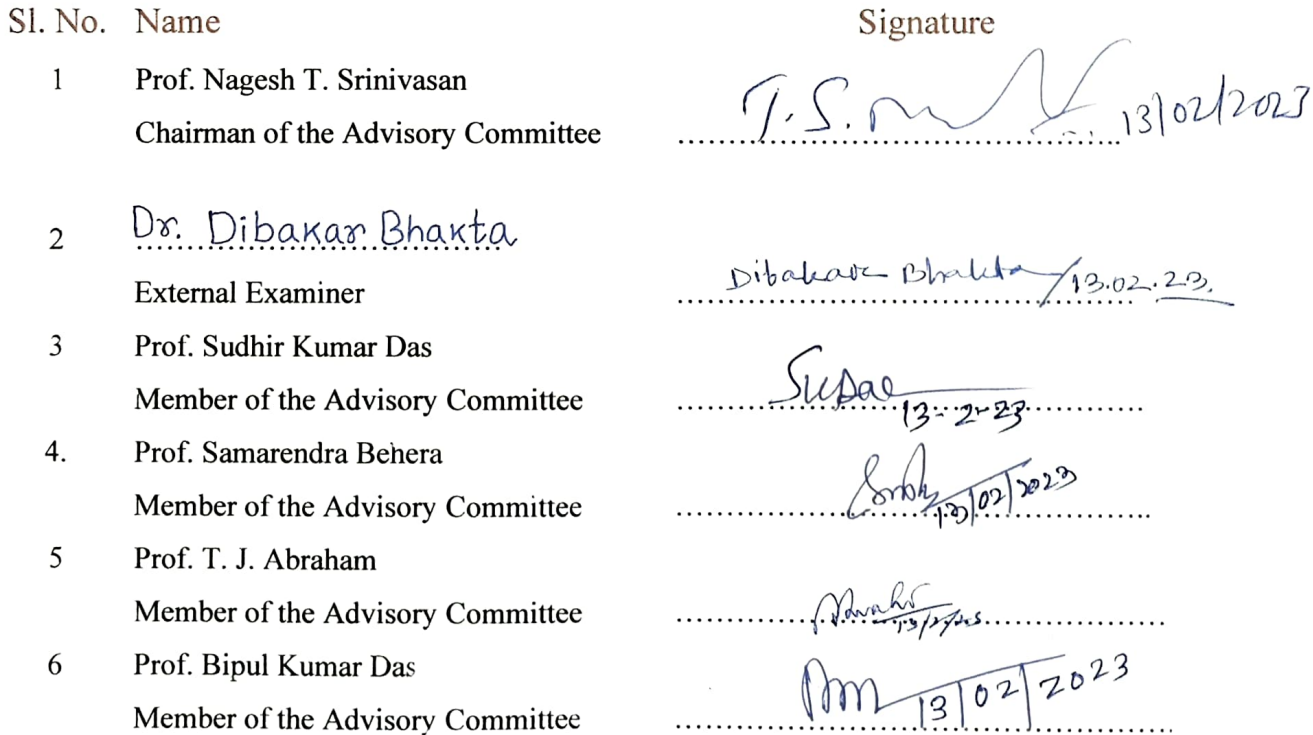 Sl. No. Name Signature
1 Prof. Nagesh T. Srinivasan
Chairman of the Advisory Committee T. S. 13/02/2023
2 Dr. Dibakar Bhakta
External Examiner Dibakar Bhakta /13.02.23.
3 Prof. Sudhir Kumar Das
Member of the Advisory Committee 13-2-23
4. Prof. Samarendra Behera
Member of the Advisory Committee 13/02/2023
5 Prof. T. J. Abraham
Member of the Advisory Committee
6 Prof. Bipul Kumar Das
Member of the Advisory Committee 13/02/2023